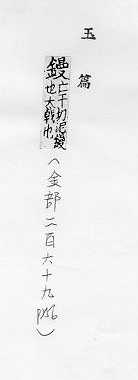 玉篇
鏝亡干切泥鏝
也
(金部二百六十九)